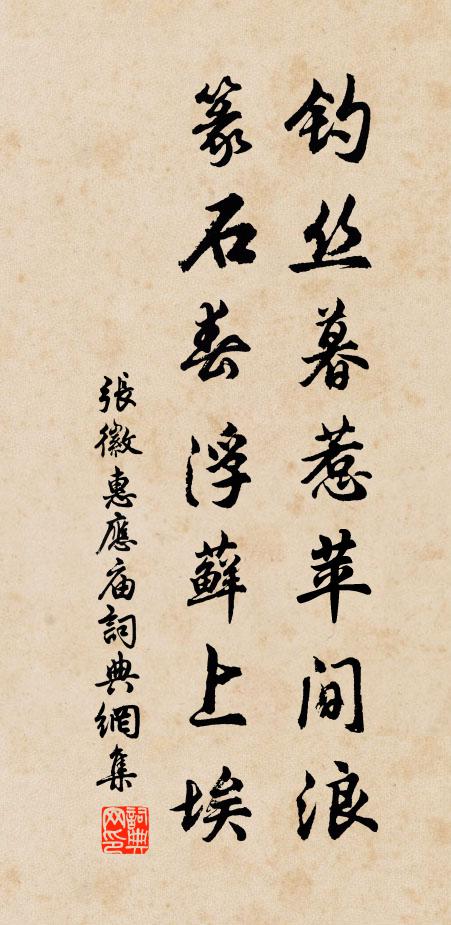 钓丝暮惹苹间浪
篆石春浮藓上埃
張徽惠應庙詞典網集
詞典网印